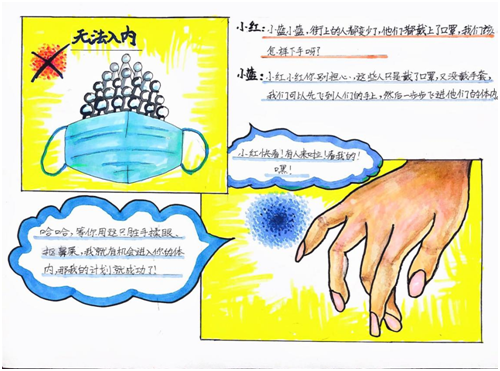 无法入内
小红：小蓝小蓝，街上的人都变少了，他们都戴上了口罩，我们该
怎样下手呀？
小蓝：小红小红你别担心，这些人只是戴了口罩，又没戴手套，
我们可以先飞到人们的手上，然后一步步飞进他们的体内
小红快看！有人来啦！看我的！
嘿！
哈哈，等你用这只脏手揉眼、
抠鼻屎，我就有机会进入你的体
内，那我的计划就成功了！